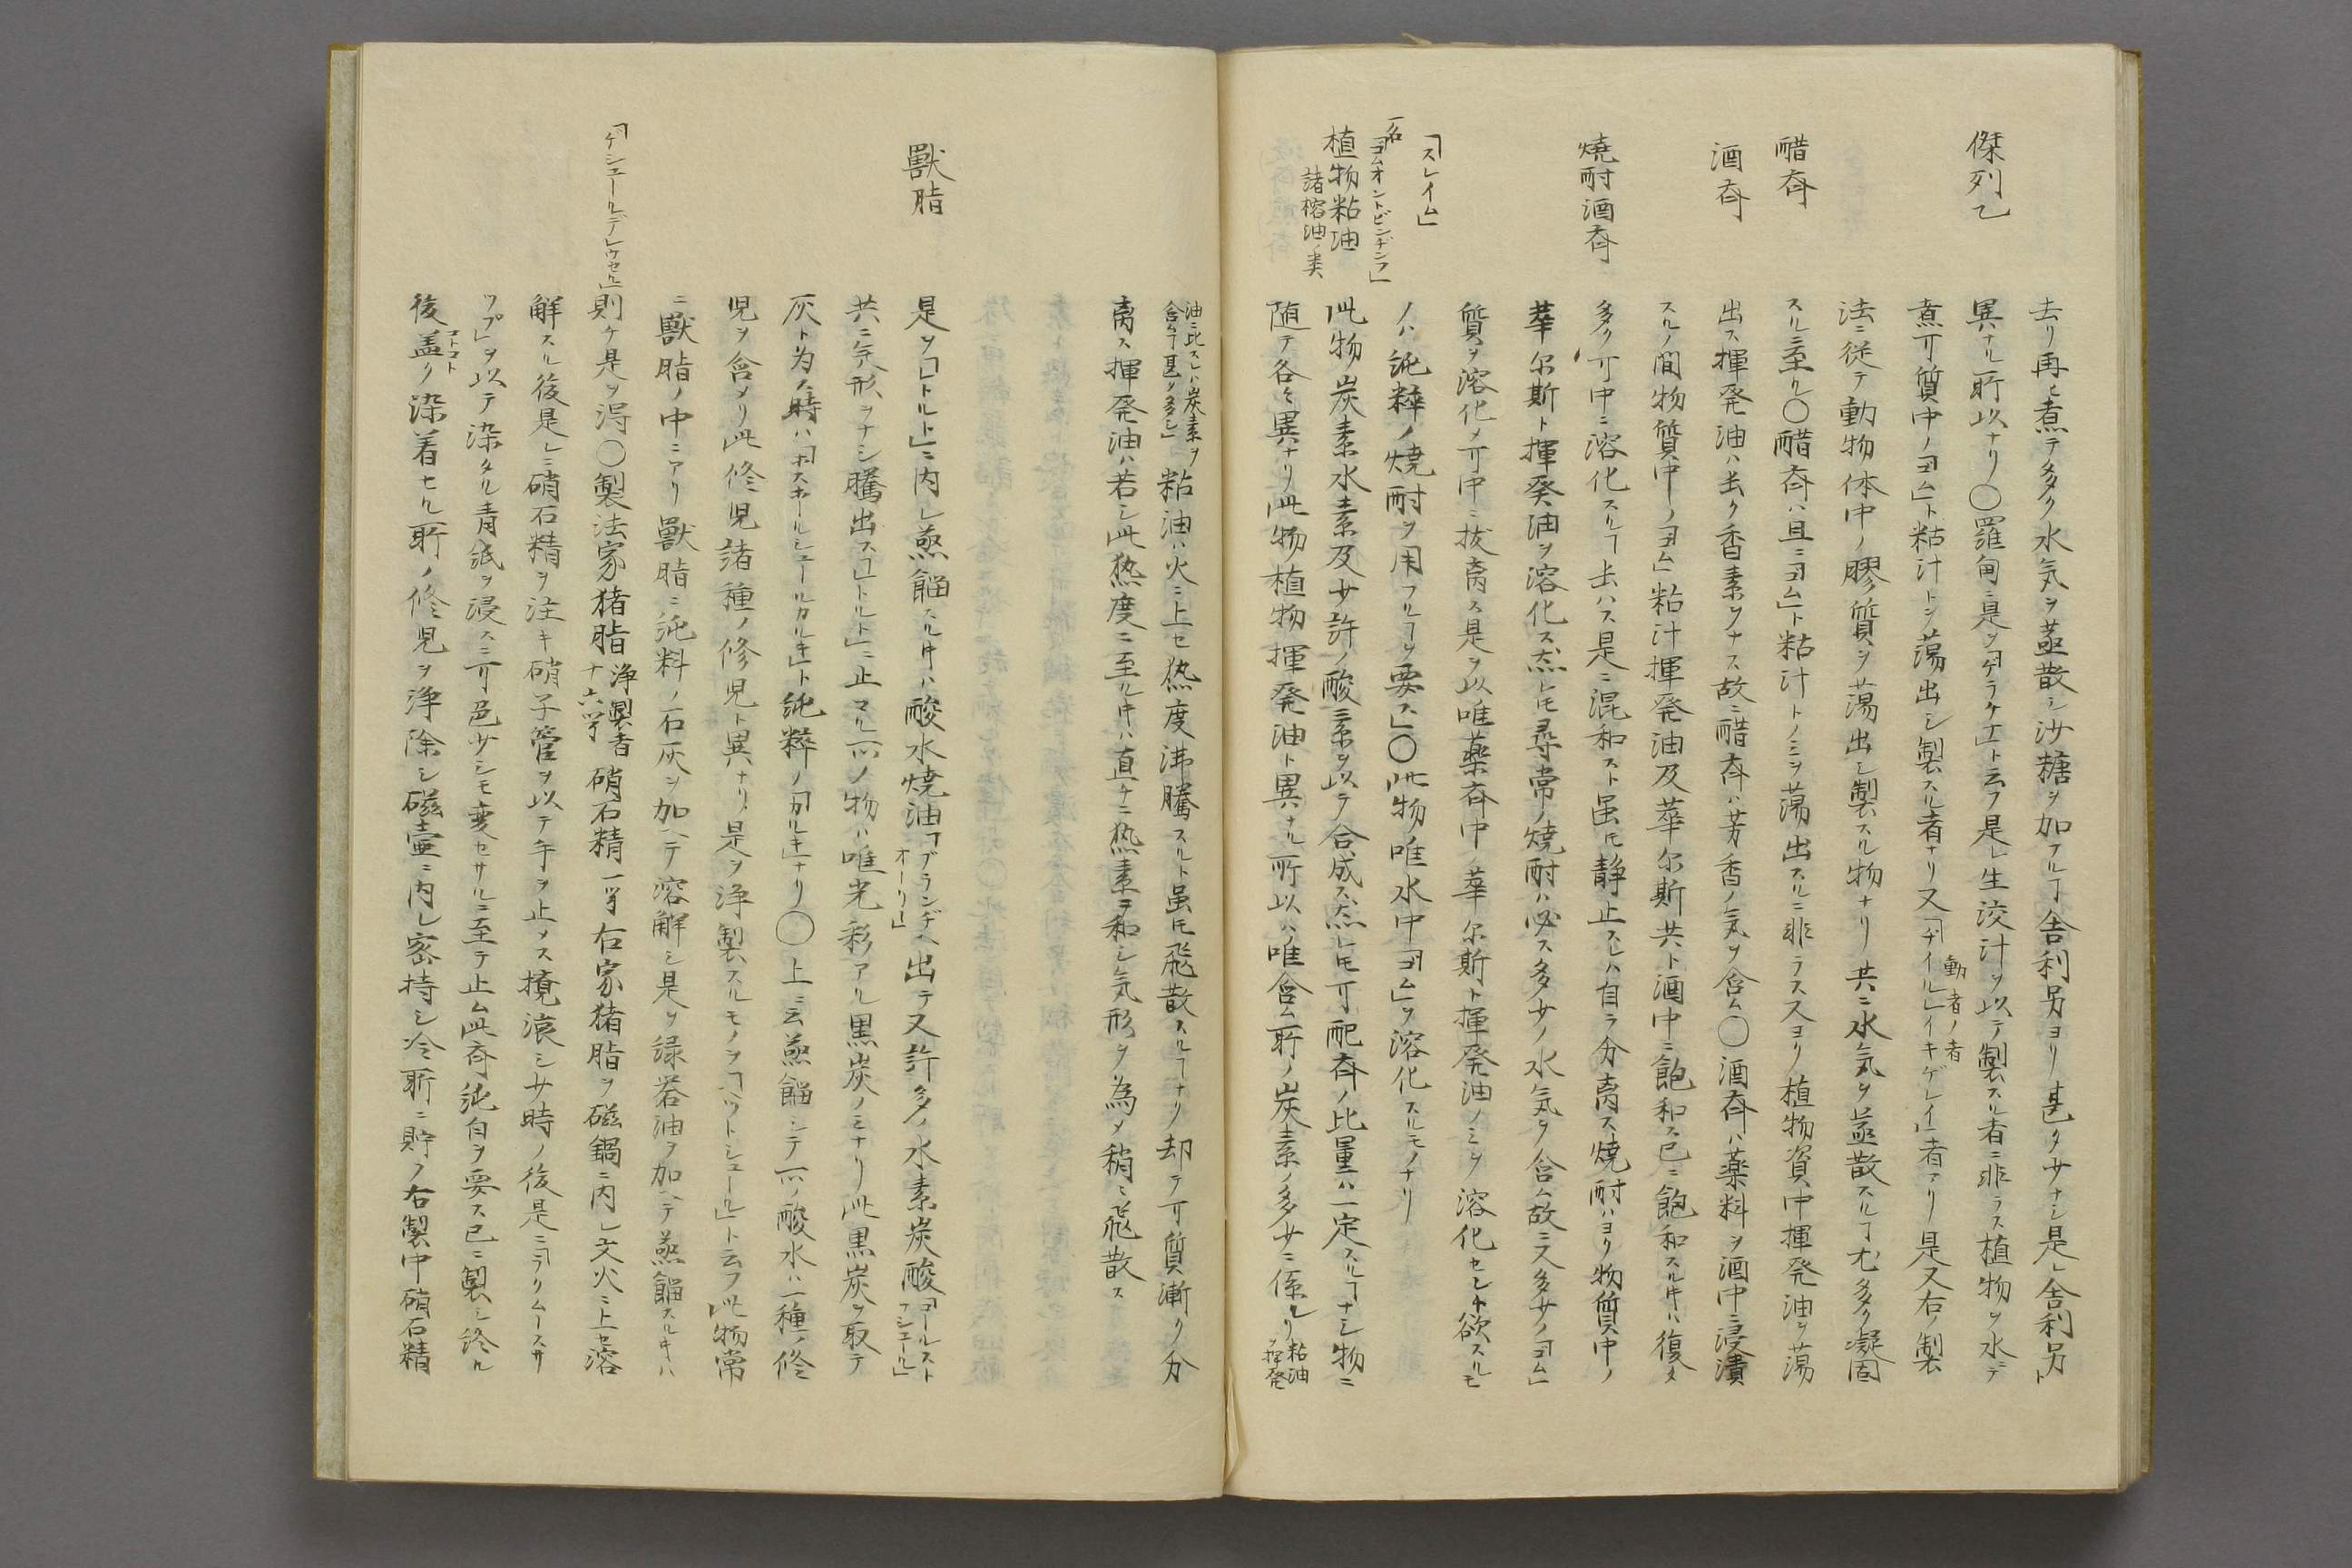 去リ再ヒ煮テ多ク水気ヲ蒸散シ沙糖ヲ加フルヿ舎利别ヨリ甚タ少ナシ是レ舎利别ト
傑列乙
異ナル所以ナリ〇羅甸ニ是ヲ「ゲラケエ」ト云フ是レ生汁ヲ以テ製スル者ニ非ラス植物ヲ水デ
煮テ質中ノ「ゴム」ト粘汁トシ蕩出シ製スル者ナリ又「ヂイル」イキゲレイ」者アリ是又右ノ製
動者ノ者
法ニ従テ動物体中ノ膠質ヲ蕩出シ製スル物ナリ共ニ水気ヲ蒸散スルヿ尤多ク凝固
醋斎
スルニ至ル〇醋斎ハ且ニ「ゴム」ト粘汁トノミヲ蕩出スルニ非ラス又ヨリ植物質中揮発油ヲ蕩
酒斎
出ス揮発油ハ長ク香素ヲナス故ニ醋斎ハ芳香ノ気ヲ含ム〇酒斎ハ薬料ヲ酒中ニ浸漬
スルノ間物質中ノ「ゴム」粘汁揮発油及華尔斯共ト酒中ニ飽和ス已ニ飽和スル片ハ復タ
焼酎酒斎
多ク中ニ溶化スルヿ出ハス是ニ混和スト虽モ静止スレハ自ラ分离ス焼酎ハヨリ物質中ノ
華尔斯ト揮発油ヲ溶化ス然レモ尋常ノ焼酎ハ必ス多少ノ水気ヲ含ム故ニ又多少ノ「ゴム」
質ヲ溶化メ中ニ抜离ス是ヲ以唯薬斎中ノ華尔斯ト揮発油ノミヲ溶化セント欲スルモ
「スレイム」
ノハ純粹ノ焼酎ヲ用フルヿヲ要ス」〇此物唯水中「ゴム」ヲ溶化スルモノナリ
一名「ゴムオントビンヂンフ」
植物粘油
諸搾油ノ类
此物炭素水素及少許ノ酸素ヲ以テ合成ス然レモ配斎ノ比量ハ一定スルヿナシ物ニ
随テ各々異ナリ此物植物揮発油ト異ナル所以ハ唯含ム所ノ炭素ノ多少ニ係レリ
粘油揮発
油ニ比スレハ炭素ヲ
含ム甚タ多シ
粘油ハ火ニ上セ热度沸騰スルト虽モ飛散スルヿナリ却テ質漸ク分
离ス揮発油ハ若シ此热度ニ至ル片ハ直チニ热素ヲ和シ気形ヲ為メ稍ニ飛散ス
獸脂
是ヲ「コトルト」ニ内レ蒸餾スル片ハ酸水焼油「ブランデ
オーリー」ヘ出テ又許多ノ水素炭酸「コールスト
フシユール」
共ニ気形ヲナシ騰出ス「コトルト」ニ止マル所ノ物ハ唯光彩アル黒炭ノミナリ此黒炭ヲ取テ
灰ト为ス時ハ「ホスホールシユールカルキ」ト純粹ノ「カルキ」ナリ〇上ニ云蒸餾シテ所ノ酸水ハ一種ノ修
児ヲ含メリ此修児諸種ノ修児ト異ナリ是ヲ浄製スルモノヲ「ヘットシユール」ト云フ此物常
ニ獸脂ノ中ニアリ獸脂ニ純料ノ石灰ヲ加ヘテ溶解シ是ヲ緑礬油ヲ加ヘテ蒸餾スル片ハ
「ゲシユールデレウセル」
則ケ是ヲ得〇製法家猪脂
浄製者
十六
硝石精一右家猪脂ヲ磁鍋ニ内レ文火ニ上セ溶
解スル後是レニ硝石精ヲ注キ硝子管ヲ以テ手ヲ止メス攪滾シ少時ノ後是ニ「ラクムースサ
ツプ」ヲ以テ染タル青紙ヲ浸スニ色少シモ变セサルニ至テ止ム此斎純白ヲ要ス已ニ製シ終ル
コトコト
後盖リ染着セル所ノ修児ヲ浄除シ磁壷ニ内レ密持シ冷所ニ貯フ右製中硝石精